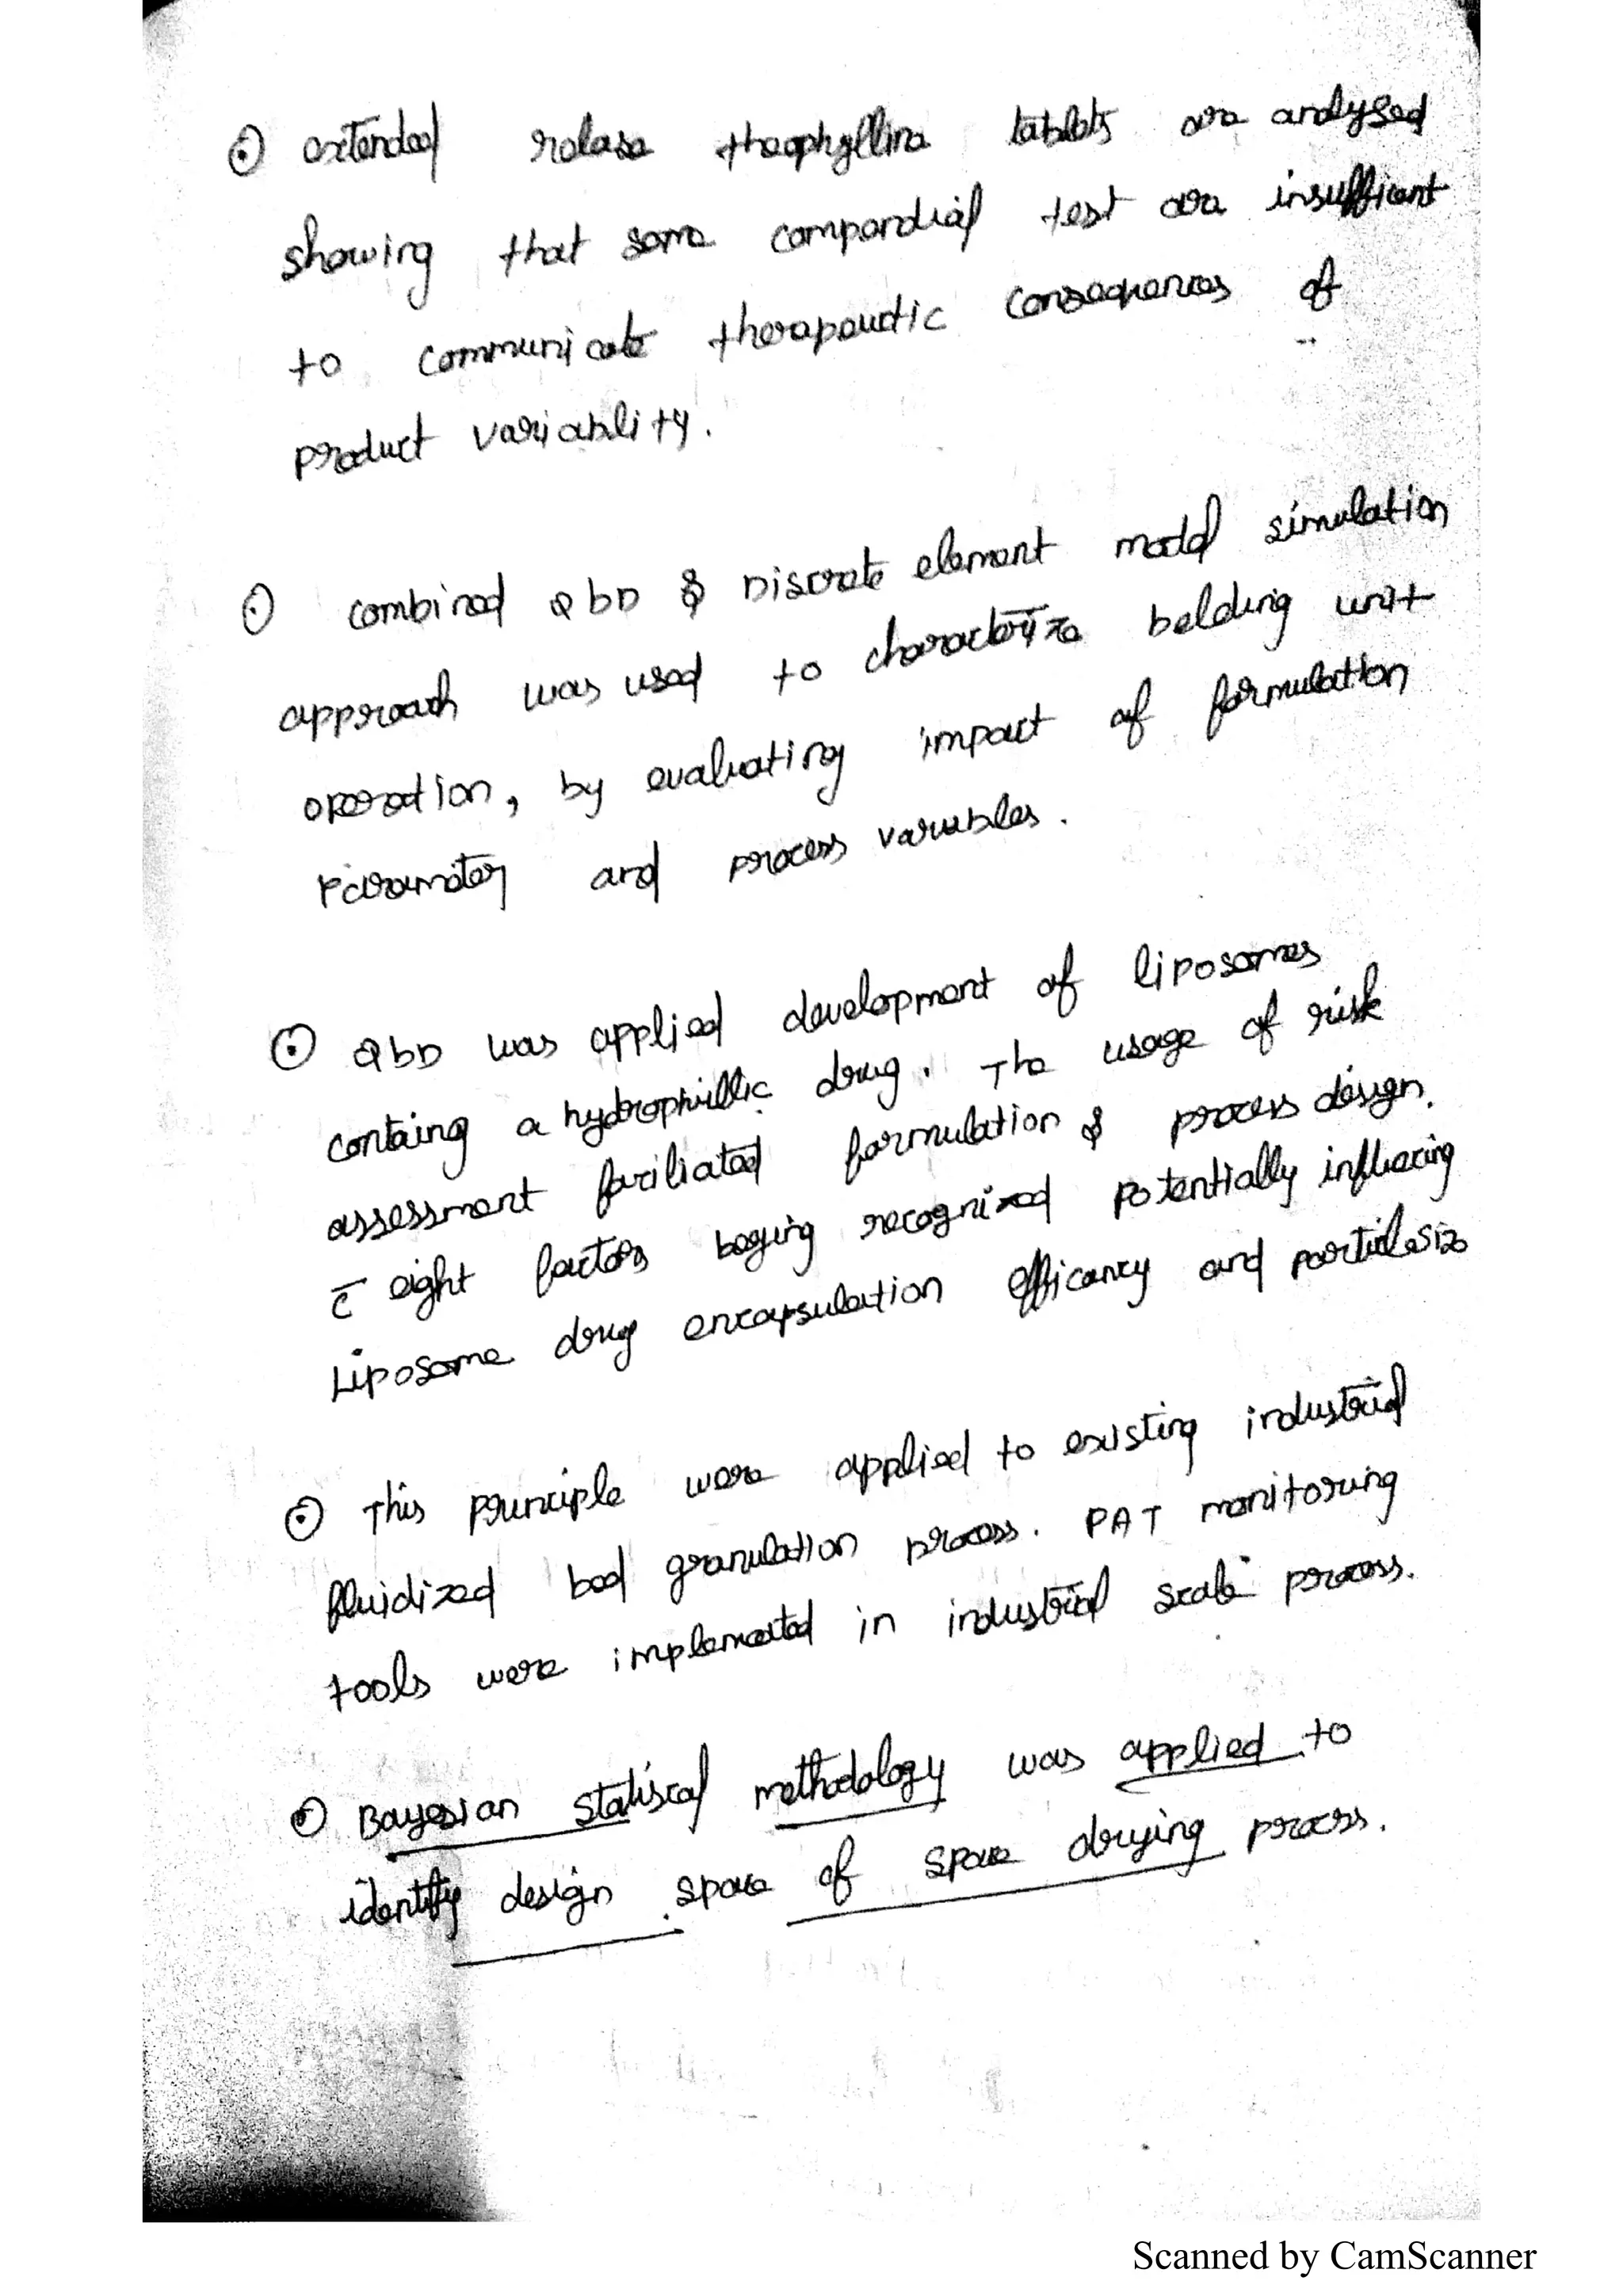 ⊙ extended relase theophylline tablets are analysed
showing that some compendial test are insufficent
to communicate therapeutic consequences of
product variability.
⊙ combined QbD & Discrete element model simulation
approach was used to characterize belding unit
operation, by evaluating impact of formulation
Parameter and process variables.
⊙ QbD was applied development of liposomes
containg a hydrophillic drug. The usage of risk
assessment faciliated formulation & process design.
c̄ eight factors recognized potentially influecing
Liposome drug encapsulation efficancy and particle size
⊙ This principle were applied to existing industrial
fluidized bed granulation process. PAT monitoring
tools were implemeated in industrial scale process.
⊙ Bayesian statiscal methodology was applied to
identify design space of space drying process.
Scanned by CamScanner